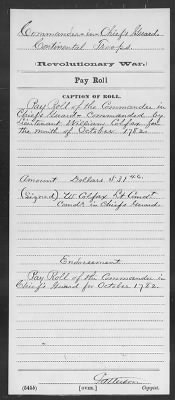 Commander in Chief's Guard
Continental Troops.
Revolutionary War.
Pay Roll
CAPTION OF ROLL.
Pay Roll of the Commander in
Chief's Guard Commanded by
Lieutenant William Colfax for
the month of October 1782
Amount Dollars 531 42.
(Signed) Wm Colfax Lt Comdt
Comdr in Chiefs Guard
Endorsement
Pay Roll of the Commander in
Chief's Guard for October 1782
Patterson
(545b) [OVER.] Copyist.